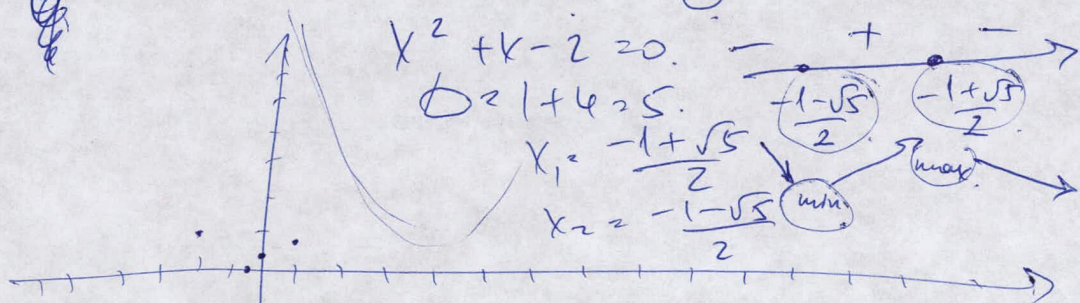 x² + x - 2 = 0.
D = 1 + 4 = 5.
x₁ = (-1 + √5)/2
x₂ = (-1 - √5)/2
- + -
(-1 - √5)/2 (-1 + √5)/2
min. max.